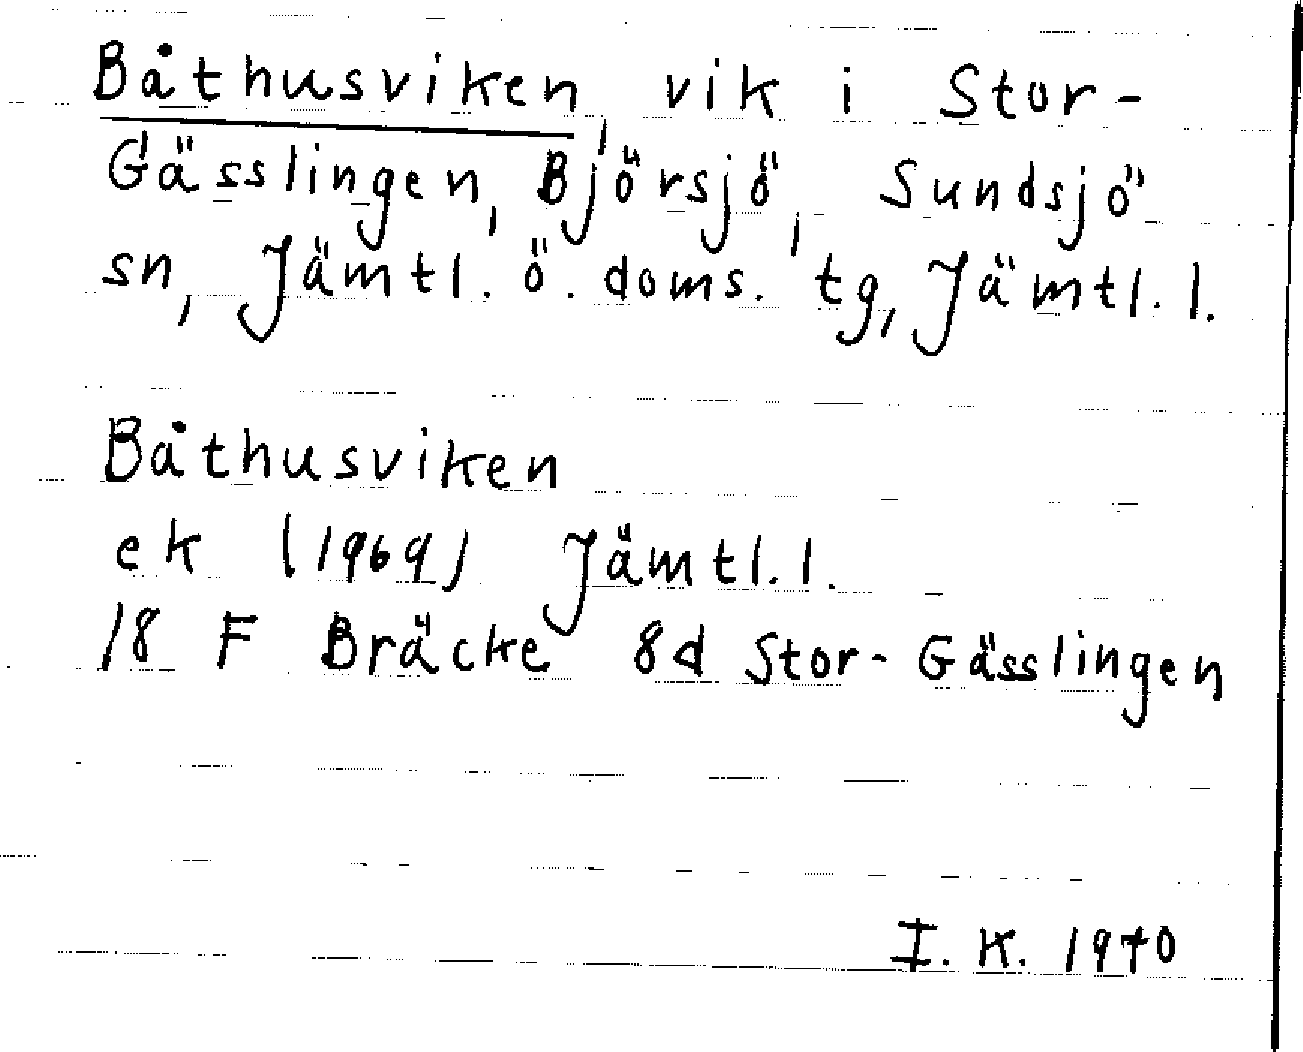 Båthusviken, vik i Stor-
Gässlingen, Björsjö, Sundsjö
sn, Jämtl. ö. doms. tg, Jämtl. l.
Båthusviken
ek (1969) Jämtl. l.
18 F Bräcke 8d Stor-Gässlingen
I. K. 1970